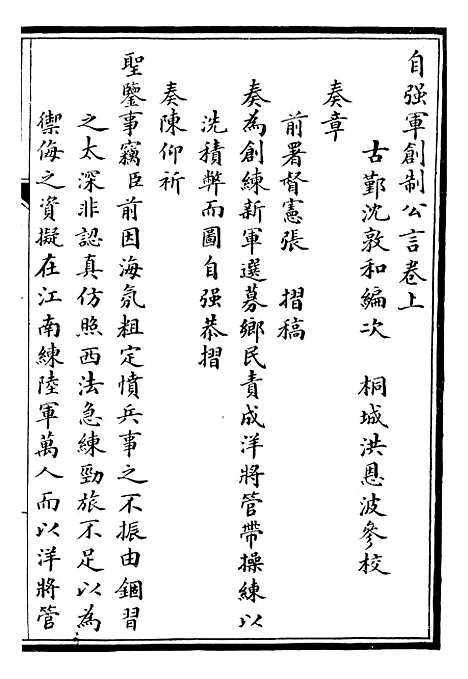 自强軍創制公言卷上
古鄞沈敦和編次　桐城洪恩波參校
奏章
前署督憲張　摺稿
奏為創練新軍選募鄉民責成洋將管帶操練以
洗積弊而圖自强恭摺
奏陳仰祈
聖鑒事竊臣前因海氛粗定憤兵事之不振由錮習
之太深非認真仿照西法急練勁旅不足以為
禦侮之資擬在江南練陸軍萬人而以洋將管